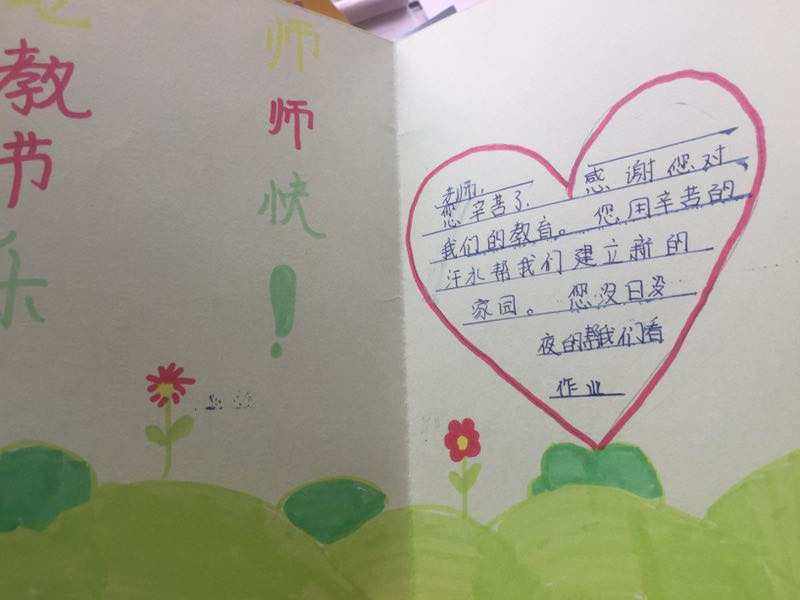 老师
教师
节快
乐!
老师,
您辛苦了,感谢您对
我们的教育。您用辛苦的
汗水帮我们建立新的
家园。您没日没
夜的帮我们看
作业